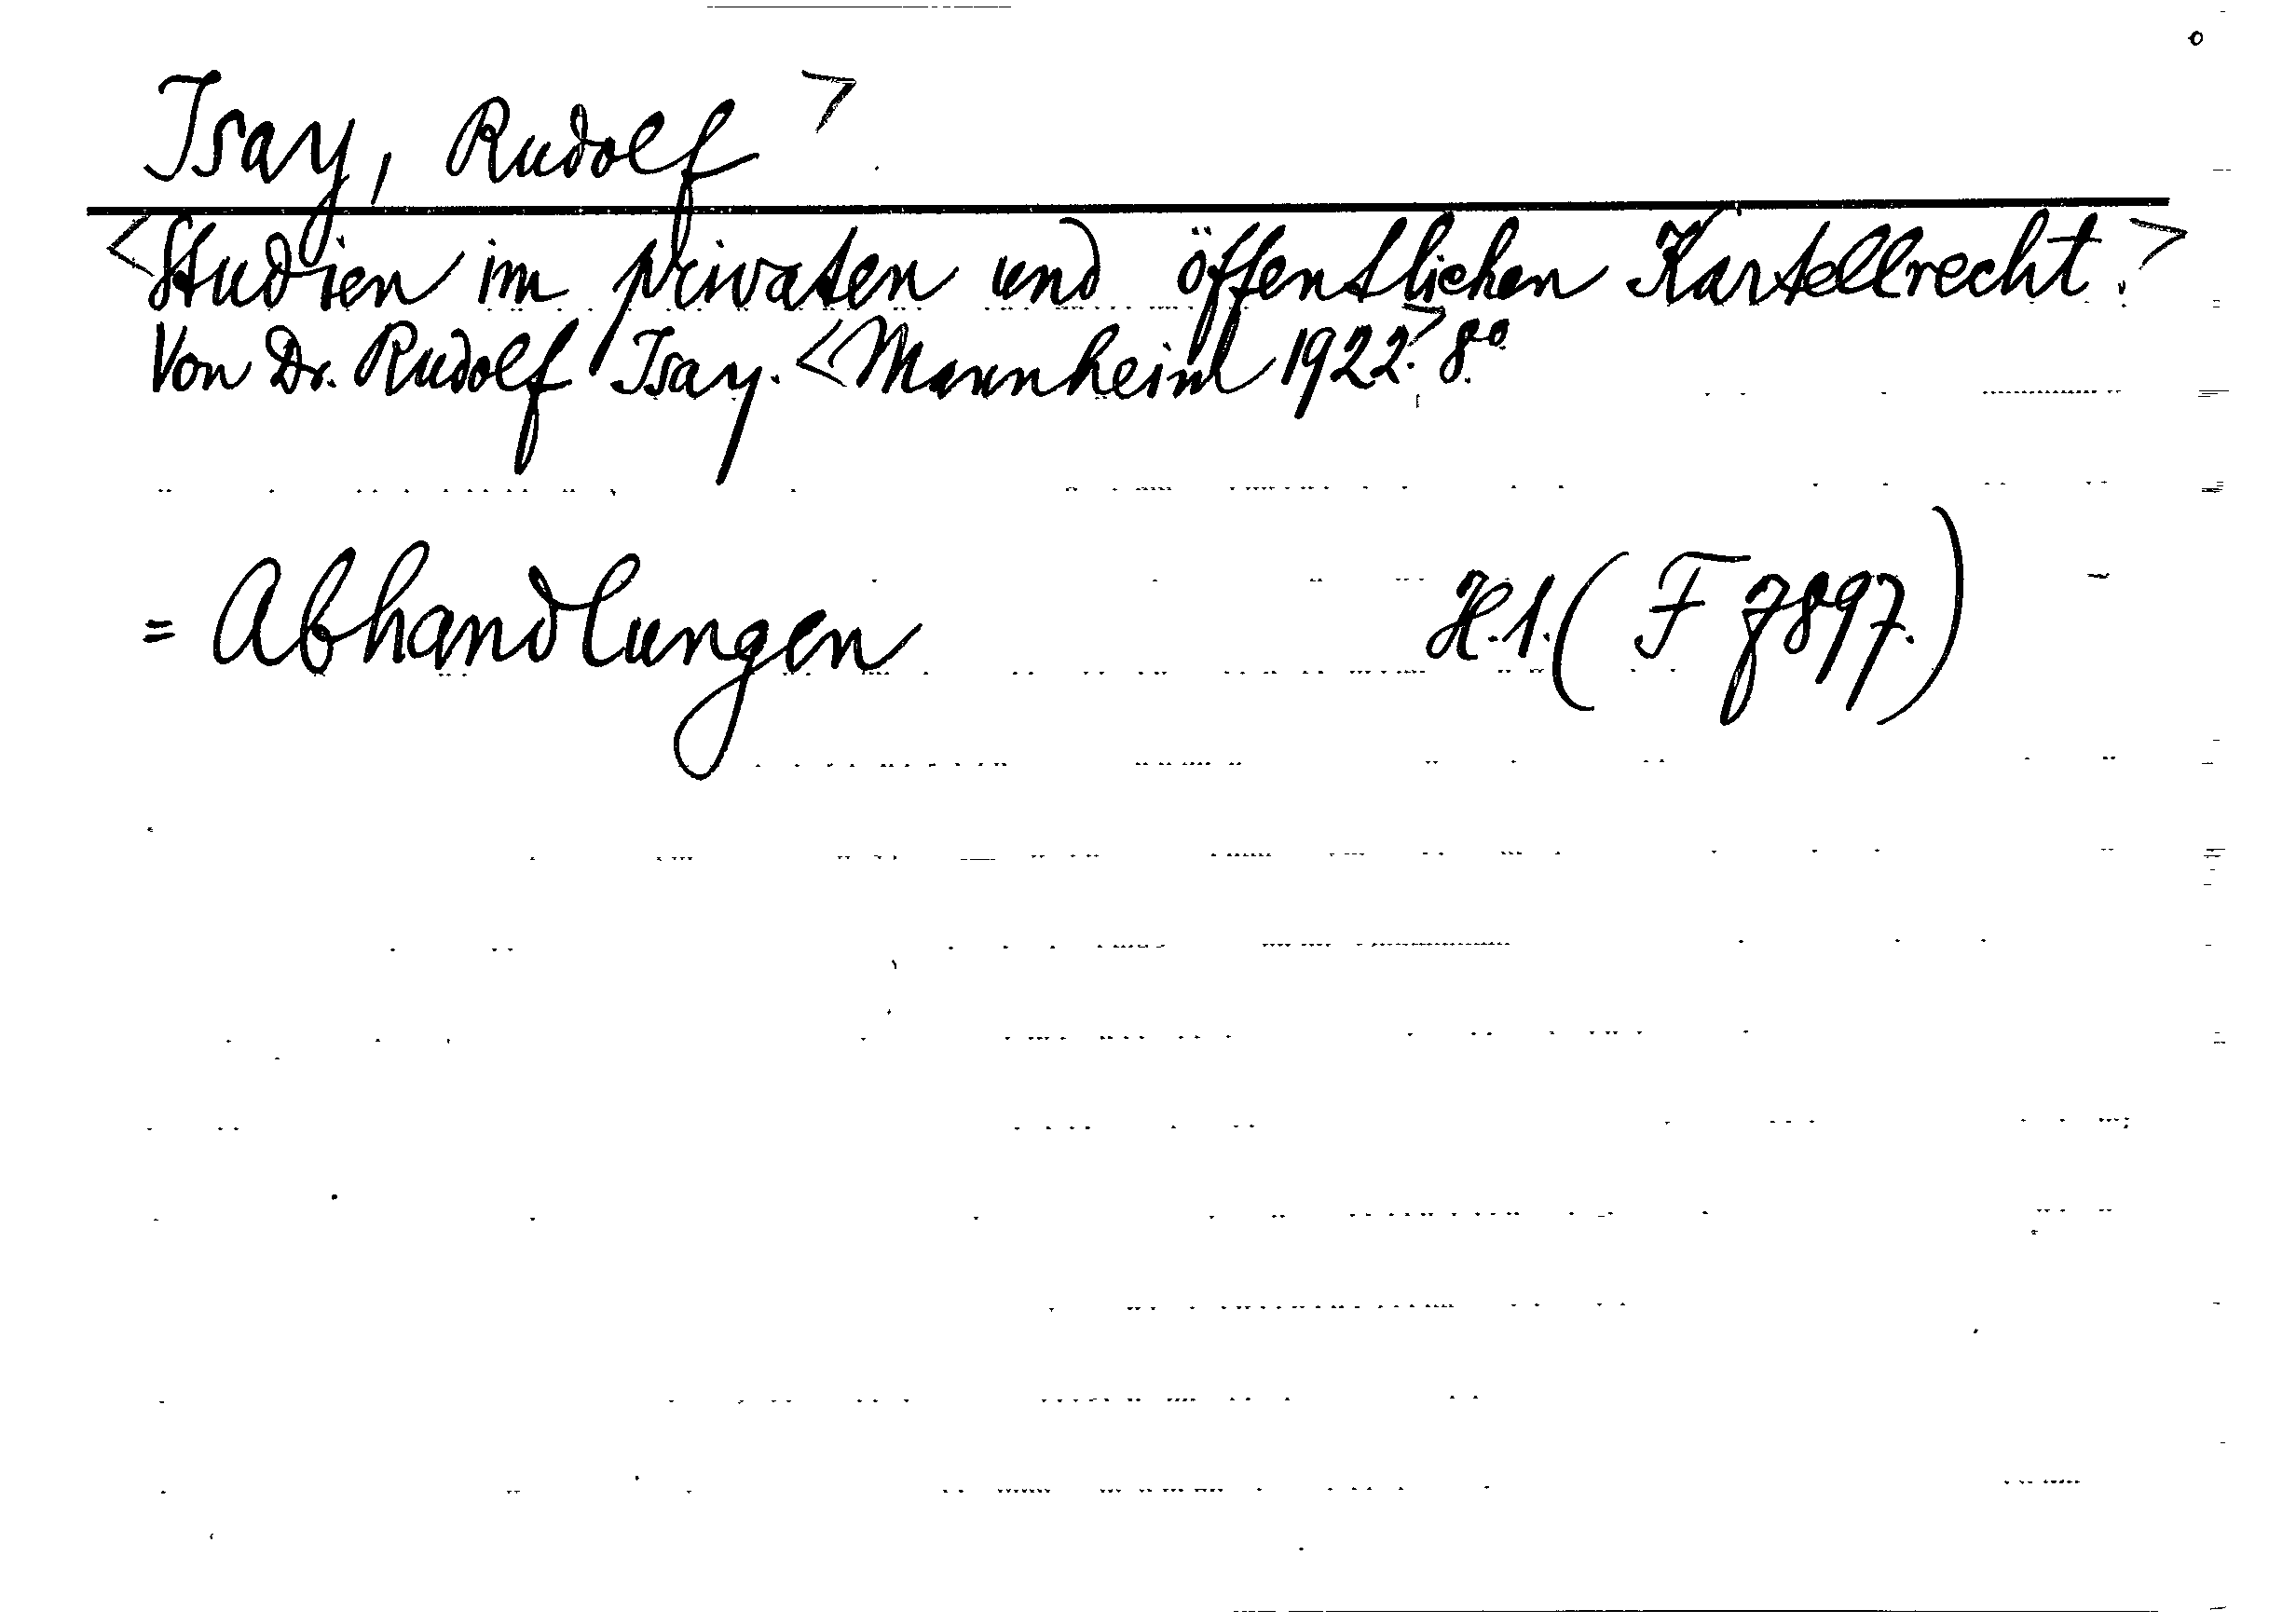 Isay, Rudolf >
<Studien im privaten und öffentlichen Kartellrecht.>
Von Dr. Rudolf Isay. <Mannheim 1922.> 8°.
= Abhandlungen H.1. (F 7897.)